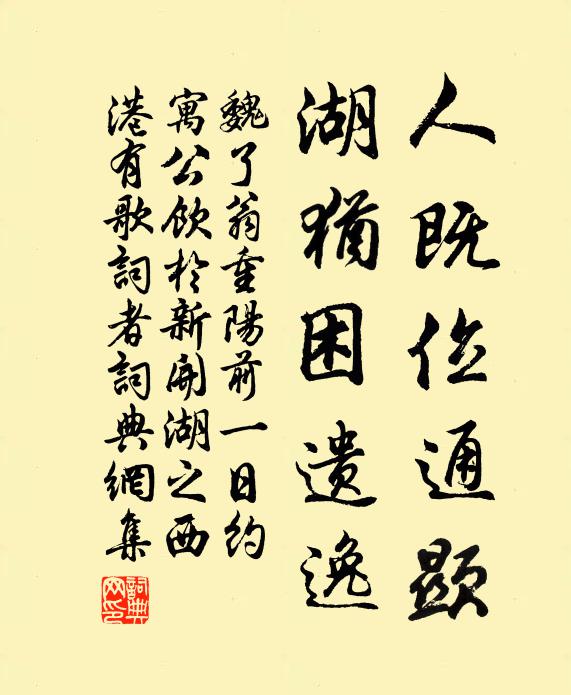 人既位通顯
湖猶困遺逸
魏了翁重陽前一日約
寓公飲於新開湖之西
港有歌詞者詞典網集
詞典網印